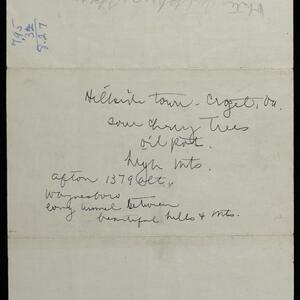 7.95
32
8.27
Hillside town - Crozet, Va.
sour cherry trees
oil pot.
high mts.
afton 1379 feet,,
Waynesboro
long tunnel between
beautiful hills & mts.